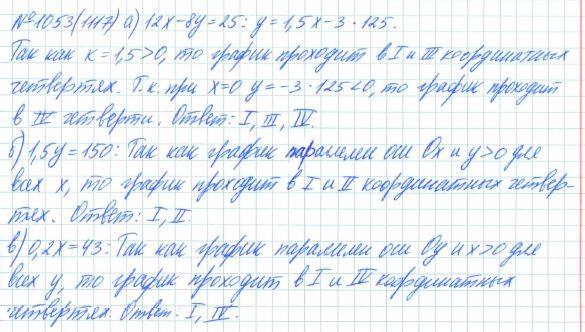 №1053(1117) а) 12x-8y=25: y=1,5x-3·125.
Так как к=1,5>0, то график проходит в I и III координатных
четвертях. Т.к. при x=0 y=-3·125<0, то график проходит
в IV четверти. Ответ: I, III, IV.
б) 1,5y=150: Так как график параллелен оси Ox и y>0 для
всех x, то график проходит в I и II координатных четвер-
тях. Ответ: I, II.
в) 0,2x=43: Так как график параллелен оси Oy и x>0 для
всех y, то график проходит в I и IV координатных
четвертях. Ответ: I, IV.